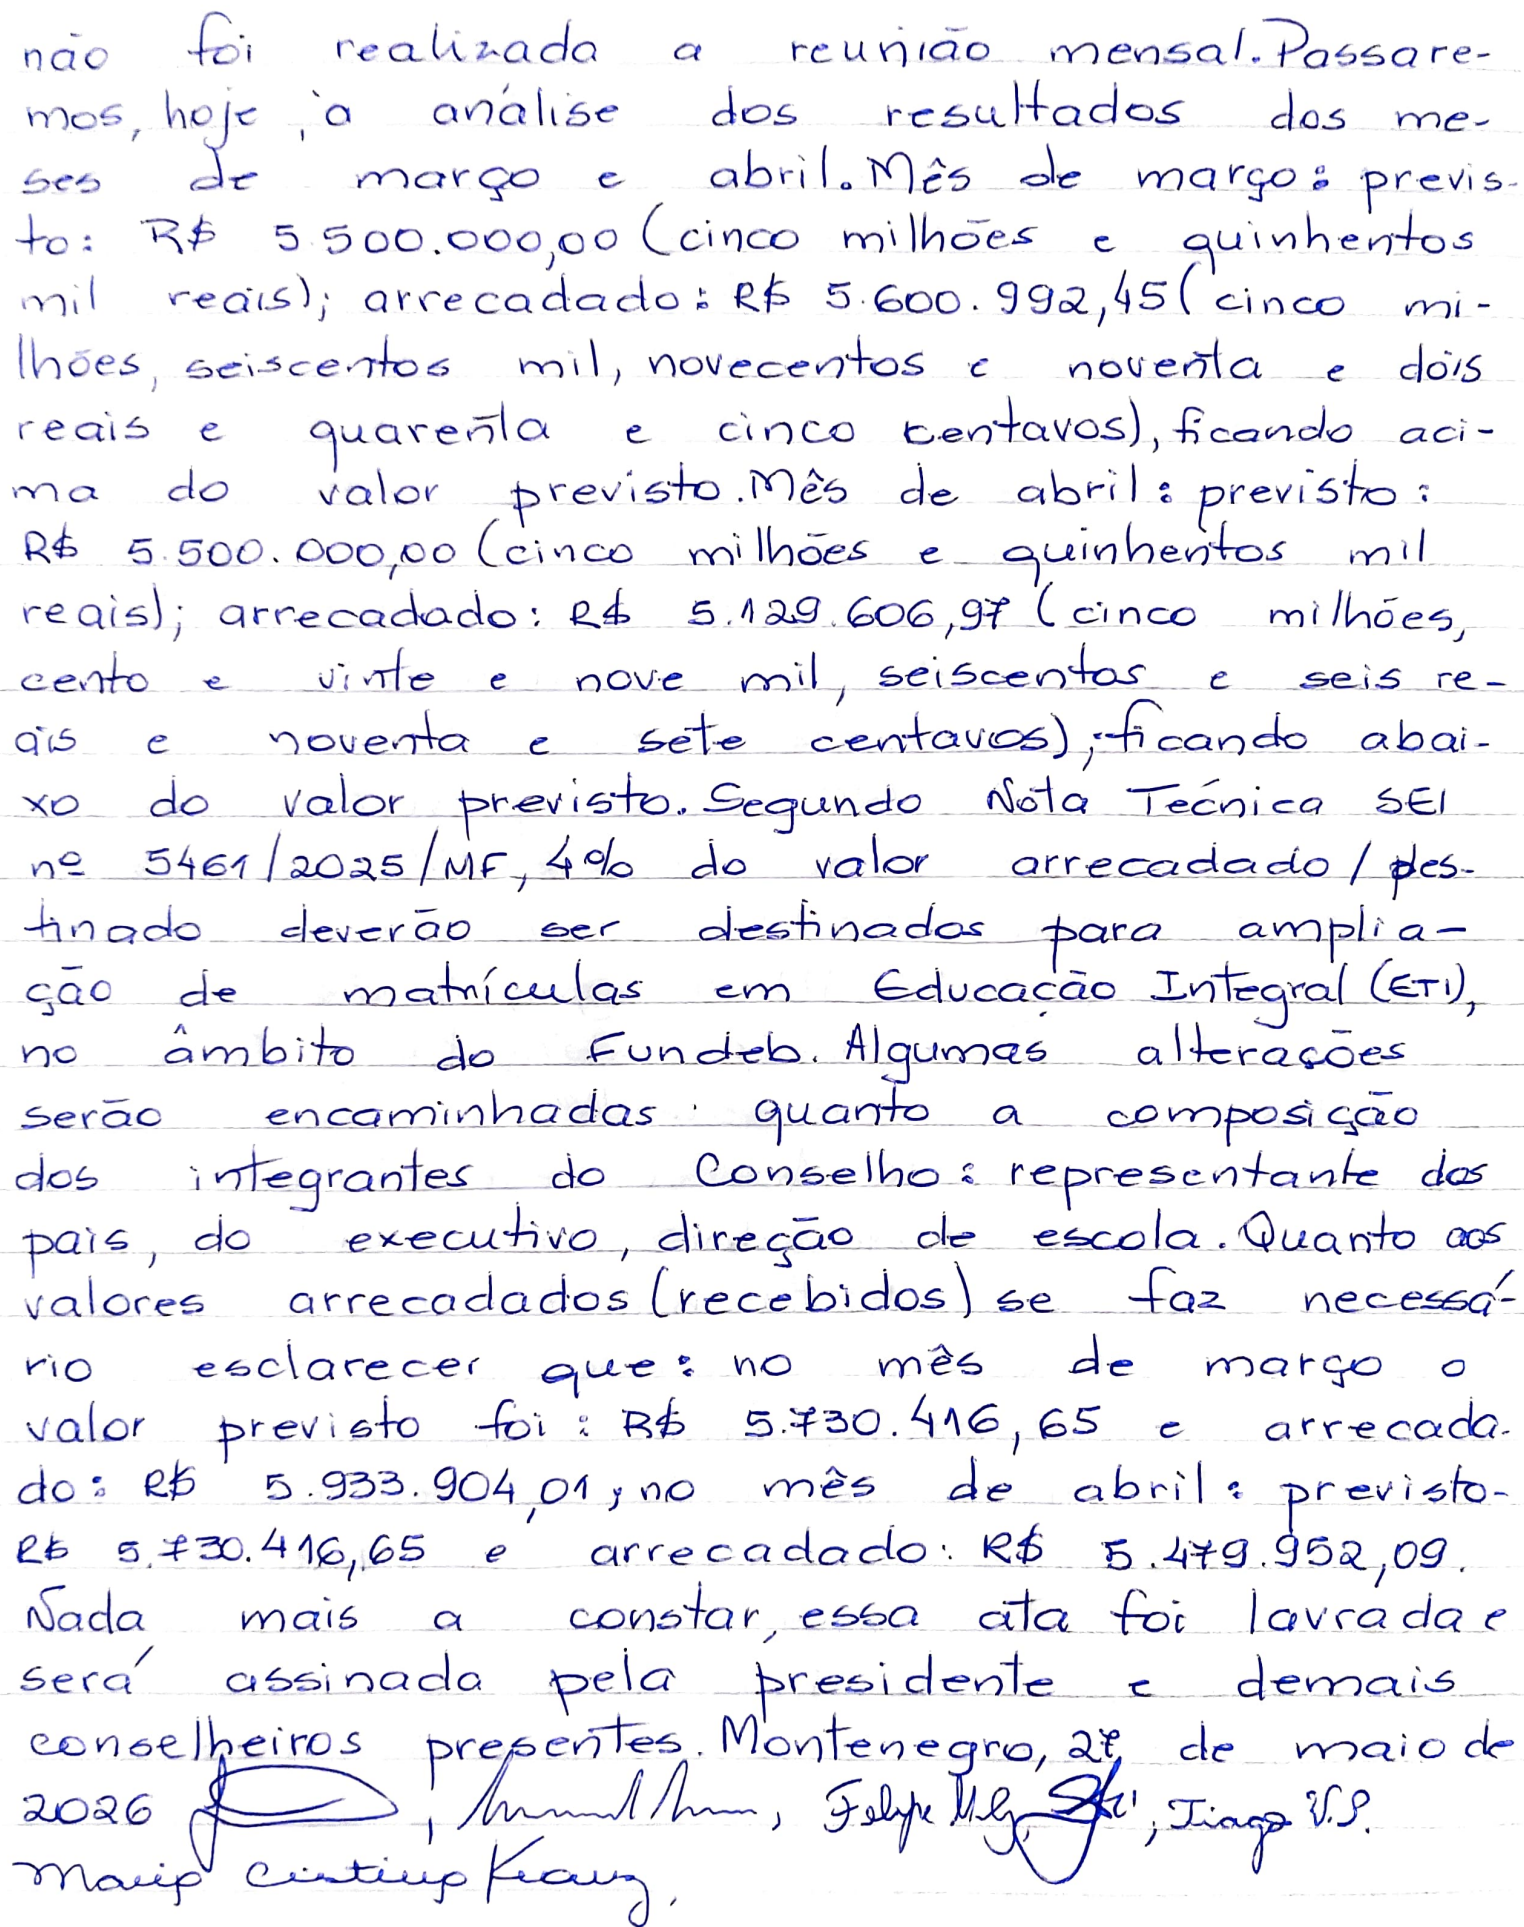 não foi realizada a reunião mensal. Passare-
mos, hoje, à análise dos resultados dos me-
ses de março e abril. Mês de março: previs-
to: R$ 5.500.000,00 (cinco milhões e quinhentos
mil reais); arrecadado: R$ 5.600.992,45 (cinco mi-
lhões, seiscentos mil, novecentos e noventa e dois
reais e quarenta e cinco centavos), ficando aci-
ma do valor previsto. Mês de abril: previsto:
R$ 5.500.000,00 (cinco milhões e quinhentos mil
reais); arrecadado: R$ 5.129.606,97 (cinco milhões,
cento e vinte e nove mil, seiscentos e seis re-
ais e noventa e sete centavos); ficando abai-
xo do valor previsto. Segundo Nota Técnica SEI
nº 5461/2025/MF, 4% do valor arrecadado/des-
tinado deverão ser destinados para amplia-
ção de matrículas em Educação Integral (ETI),
no âmbito do Fundeb. Algumas alterações
serão encaminhadas quanto a composição
dos integrantes do Conselho: representante dos
pais, do executivo, direção de escola. Quanto aos
valores arrecadados (recebidos) se faz necessá-
rio esclarecer que: no mês de março o
valor previsto foi: R$ 5.730.416,65 e arrecada-
do: R$ 5.933.904,01; no mês de abril: previsto-
R$ 5.730.416,65 e arrecadado: R$ 5.479.952,09.
Nada mais a constar, essa ata foi lavrada e
será assinada pela presidente e demais
conselheiros presentes. Montenegro, 27, de maio de
2026, Felipe, Tiago V.S.